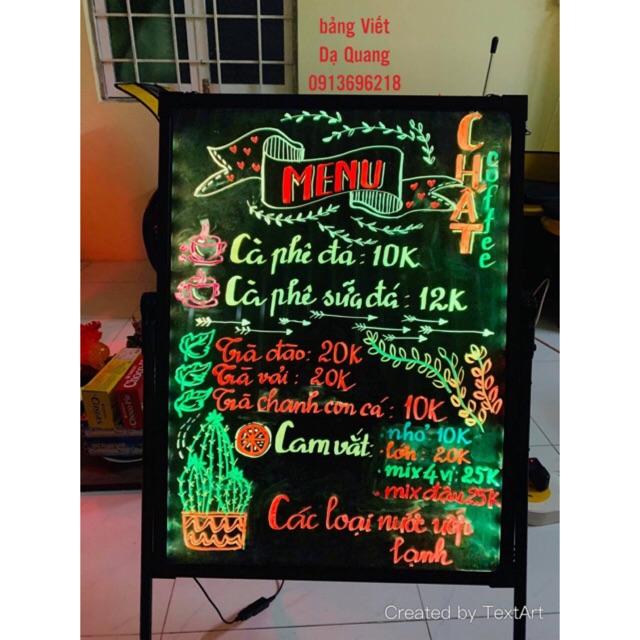 bảng Viết
Dạ Quang
0913696218
CHAT
coffee
MENU
Cà phê đá: 10K
Cà phê sữa đá: 12K
Trà đào: 20K
Trà vải: 20K
Trà chanh con cá: 10K
Cam vắt:
nhỏ: 10K
lớn: 20K
mix 4 vị: 25K
mix dâu 25K
Các loại nước uống
lạnh
Created by TextArt